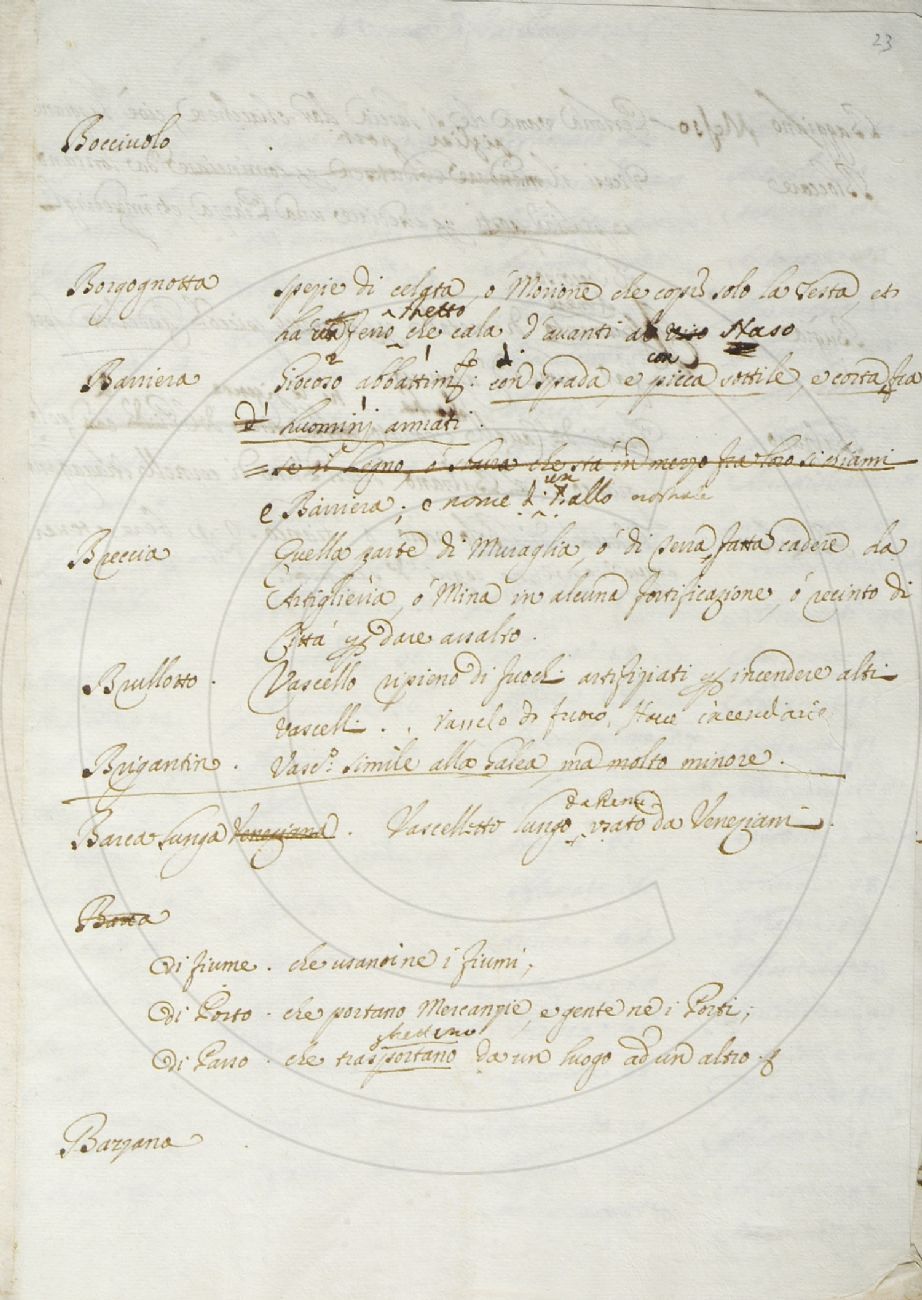 23
Bocciuolo
Borgognotta spezie di celata, ó Morione che copre solo la Testa, et
ha un ferro che cala d'auanti al viso Naso
Barriera Giocoso abbattim: con spada, e picca sottile, e corta fra
d' huomini armati.
se il Legno, ó che stá in mezzo fra loro si chiami
e Barriera; e nome d: un Ballo
Breccia Quella parte di Muraglia, ó di Terra fatta cadere da
Artiglieria, ó Mina in alcuna fortificazione, ó recinto di
Cittá per dare assalto.
Brullotto. Vascello ripieno di fuochi artifiziati per incendere altri
vascelli. Vascelo di fuoco, Naue incendiaria
Brigantin. Vasc.º simile alla Galea, ma molto minore.
da Remi
Barca Lunga Veneziana. Vascelletto lungo, usato da Veneziani.
Barca
di fiume. che usansi ne i fiumi;
di Porto. che portano Mercanzie, e gente ne i Porti;
di Passo. che trasportano da un luogo ad un altro.
Bazzana